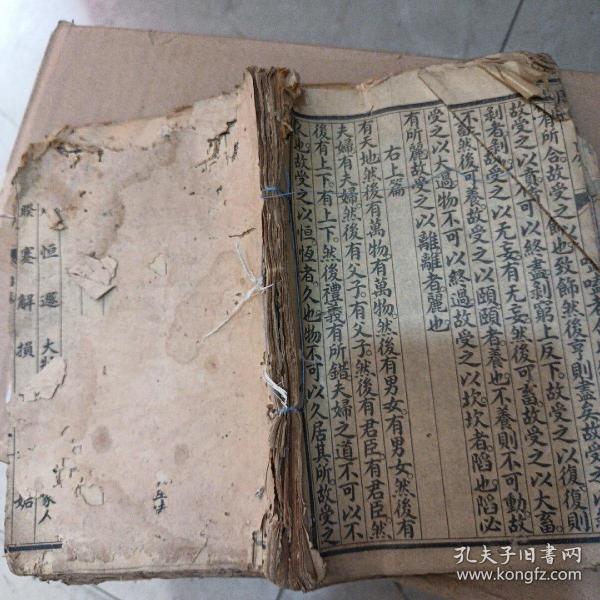 有所合故受之
飾也致飾然後亨則盡矣故
故受之以
可以終盡剝窮上反下故受之以復復則
剝者剝
故受之以无妄有无妄然後可畜故受之以大畜
然後可養故受之以頤頤者養也不養則不可動故
受之以大過物不可以終過故受之以坎坎者陷也陷必
有所麗故受之以離離者麗也
右上篇
有天地然後有萬物有萬物然後有男女有男女然後有
夫婦有夫婦然後有父子有父子然後有君臣有君臣然
後有上下有上下然後禮義有所錯夫婦之道不可以不
久也故受之以恒恒者久也物不可以久居其所故受之
恒 遯 大
睽 蹇 解 損
家人
姤
孔夫子旧書网
www.kongfz.com